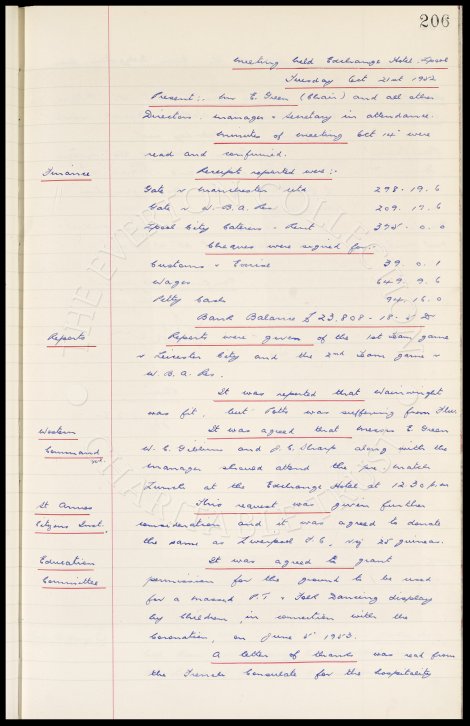 206
Meeting held Exchange Hotel. Lpool
Tuesday Oct 21st 1952
Present:. Mr E. Green (Chair) and all other
Directors. Manager & Secretary in attendance.
Minutes of Meeting Oct 14 were
read and confirmed.
Finance Receipts reported were:-
Gate v Manchester Utd 298. 19. 6
Gate v W. B. A. Res 209. 17. 6
Lpool City Caterers - Rent 375. 0. 0
Cheques were signed for:-
Customs & Excise 39. 0. 1
Wages 649. 9. 6
Petty Cash 94. 16. 0
Bank Balance £23,808 - 18 - 5 Dr
Reports Reports were given of the 1st Team game
v Leicester City and the 2nd Team game v
W. B. A. Res.
It was reported that Wainwright
was fit, but Potts was suffering from Flu.
Western It was agreed that Messrs E. Green
Command W. C. Gibbins and J. C. Sharp along with the
Manager should attend the pre match
Lunch at the Exchange Hotel at 12.30 p.m
St Annes This request was given further
Citizens Inst. consideration and it was agreed to donate
the same as Liverpool F.C. viz 25 guineas.
Education It was agreed to grant
Committee permission for the ground to be used
for a massed P.T. & Folk Dancing display
by Children, in connection with the
Coronation, on June 5 1953.
A letter of thanks was read from
the French Consulate for the hospitality
THE EVERTON COLLECTION
CHARITABLE TRUST